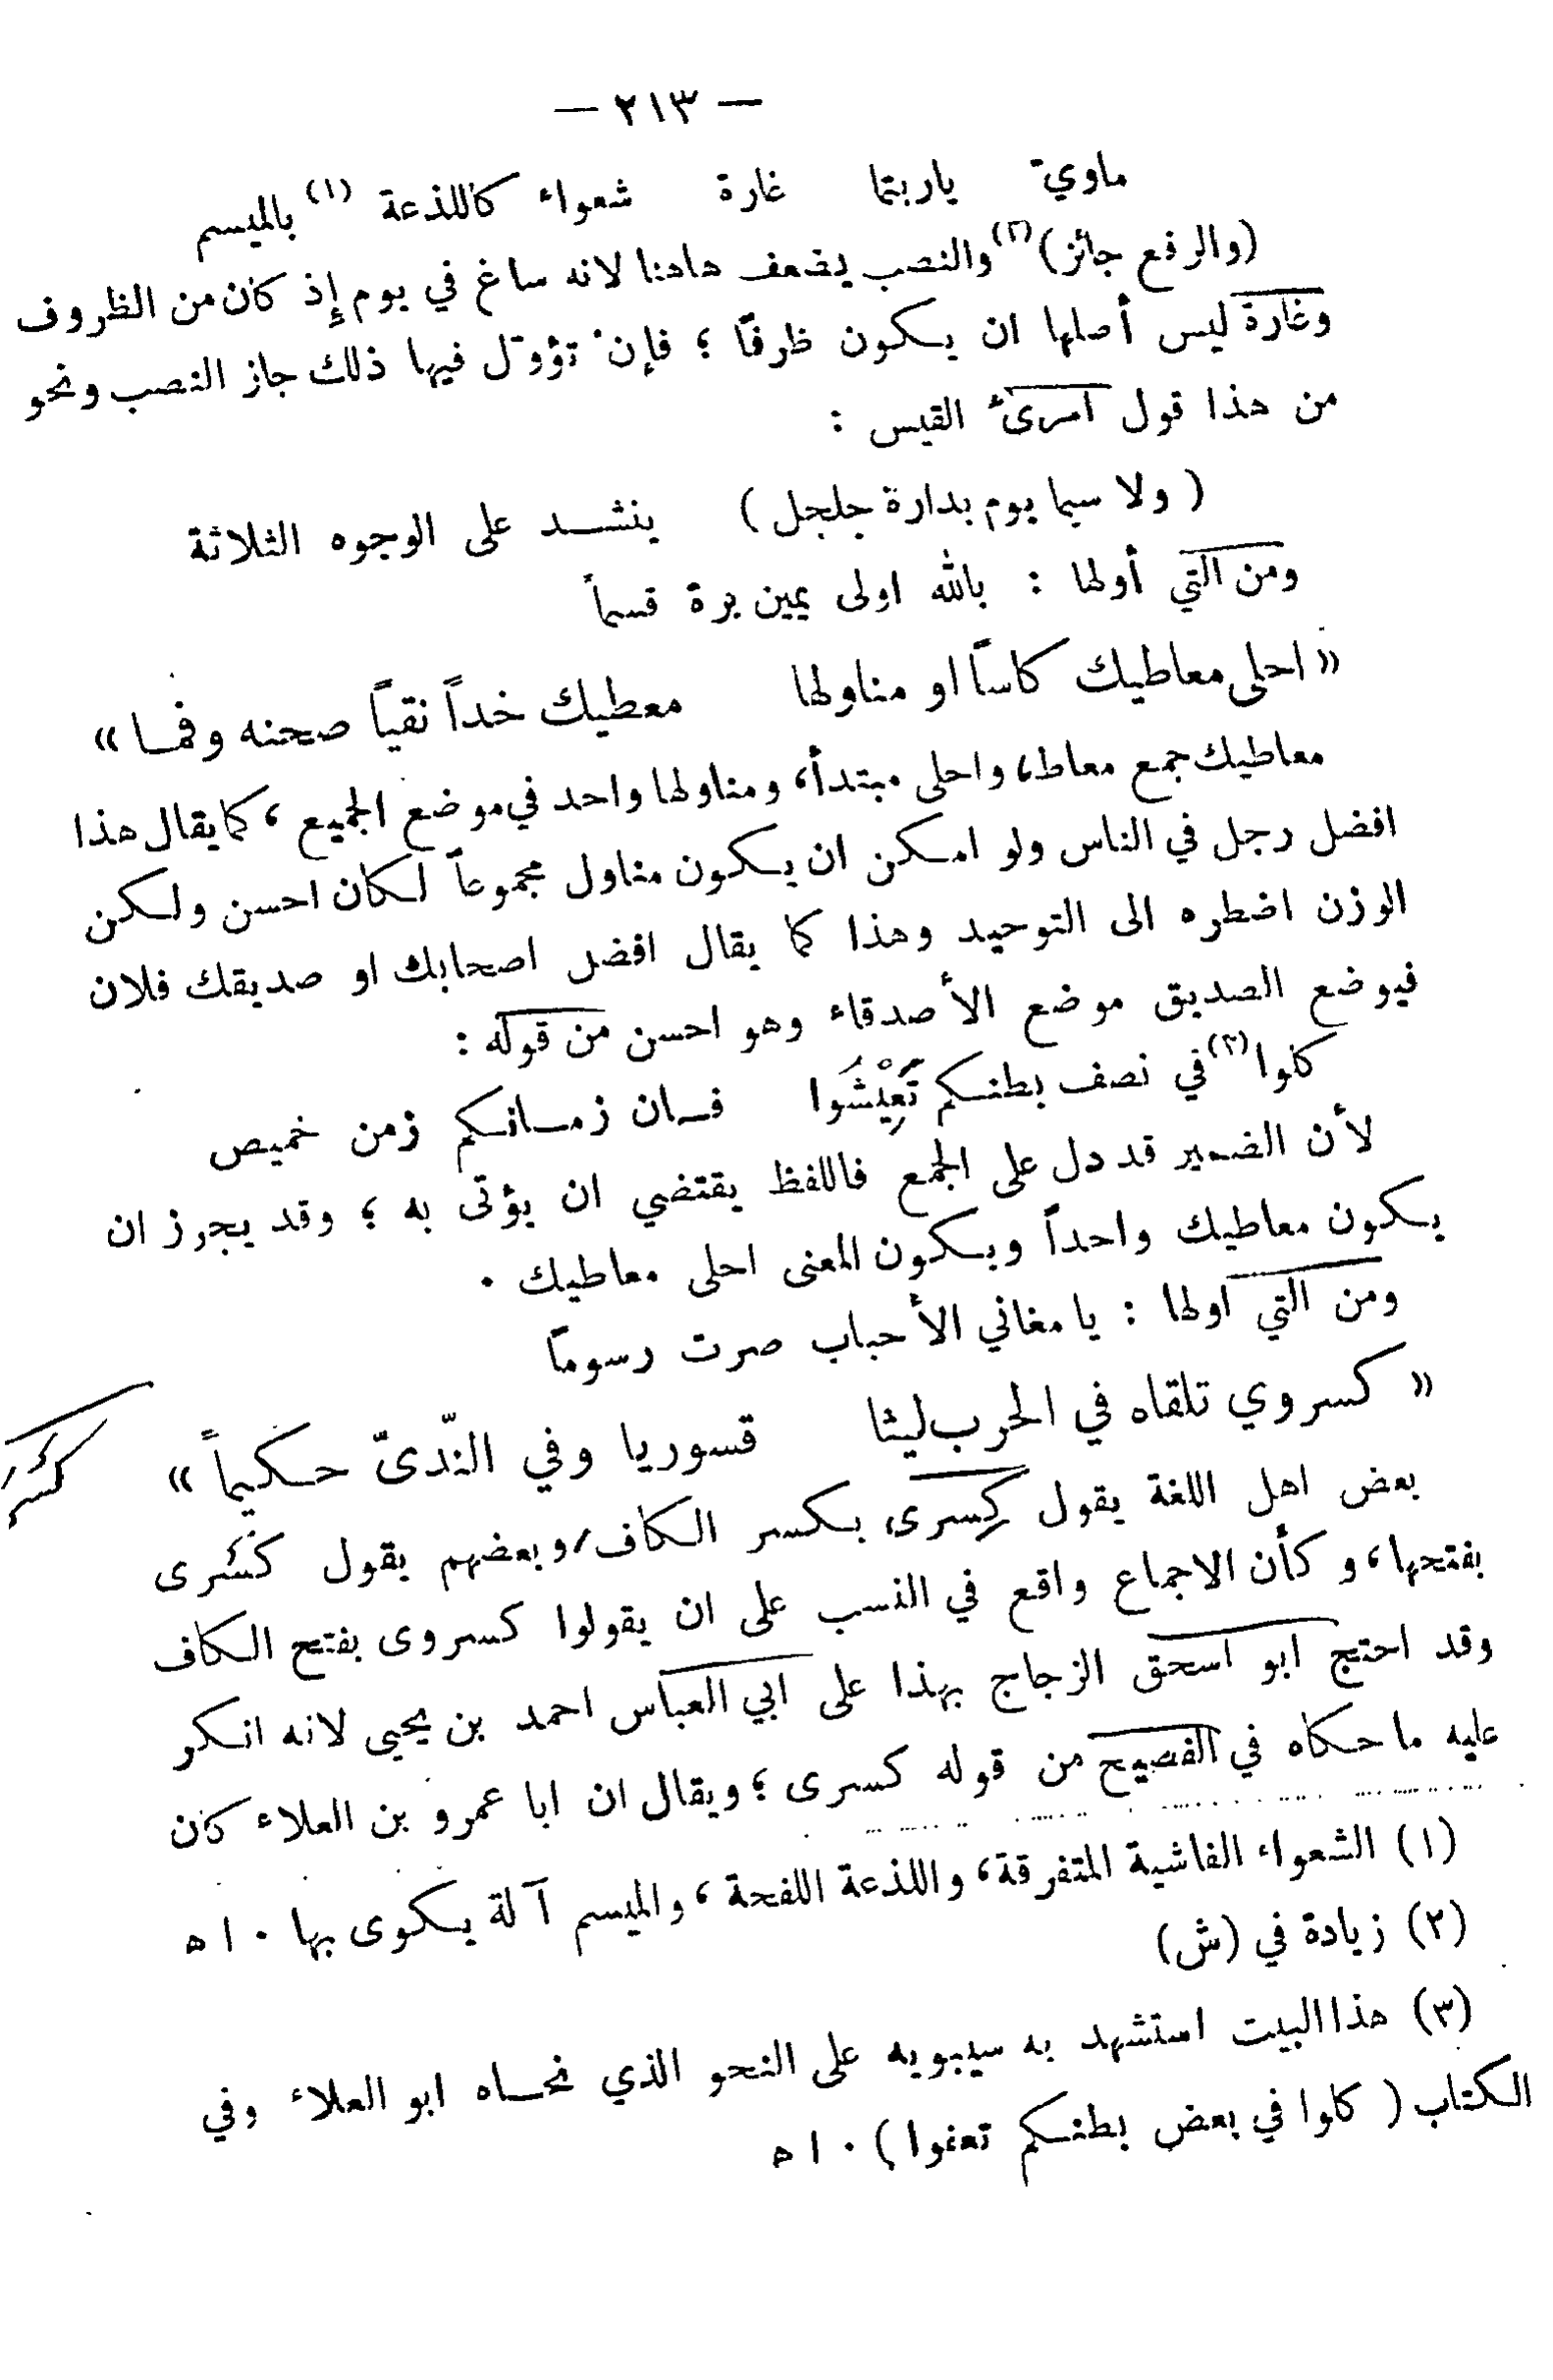 — ٢١٣ —
ماويّ ياربتما غارة شعواء كاللذعة (١) بالميسم
(والرفع جائز)(٢) والنصب يضعف هاهنا لانه ساغ في يوم إِذ كان من الظروف
وغارة ليس أصلها ان يكون ظرفًا ؛ فإِنْ تؤوّل فيها ذلك جاز النصب ونحو
من هذا قول امرئ القيس :
( ولا سيما يوم بدارة جلجل ) ينشد على الوجوه الثلاثة
ومن التي أولها : بالله اولى يمين برة قسماً
« احلى معاطيك كاساً او مناولها معطيك خداً نقياً صحنه وفما »
معاطيك جمع معاط، واحلى مبتدأ، ومناولها واحد في موضع الجميع ، كما يقال هذا
افضل رجل في الناس ولو امكن ان يكون مناول مجموعاً لكان احسن ولكن
الوزن اضطره الى التوحيد وهذا كما يقال افضل اصحابك او صديقك فلان
فيوضع الصديق موضع الأصدقاء وهو احسن من قوله :
كلوا (٣) في نصف بطنكم تَعِيْشُوا فان زمانكم زمن خميص
لأن الضمير قد دل على الجمع فاللفظ يقتضي ان يؤتى به ؛ وقد يجوز ان
يكون معاطيك واحداً ويكون المعنى احلى معاطيك .
ومن التي اولها : يا مغاني الأحباب صرت رسوماً
« كسروي تلقاه في الحرب ليثا قسوريا وفي النّدىّ حكيماً »
بعض اهل اللغة يقول كِسرى بكسر الكاف، وبعضهم يقول كَسْرى
بفتحها، وكأن الاجماع واقع في النسب على ان يقولوا كسروى بفتح الكاف
وقد احتج ابو اسحق الزجاج بهذا على ابي العباس احمد بن يحيى لانه انكر
عليه ما حكاه في الفصيح من قوله كسرى ؛ ويقال ان ابا عمرو بن العلاء كان
(١) الشعواء الفاشية المتفرقة، واللذعة اللفحة ، والميسم آلة يكوى بها . ا ه
(٢) زيادة في (ش)
(٣) هذا البيت استشهد به سيبويه على النحو الذي نحاه ابو العلاء وفي
الكتاب ( كلوا في بعض بطنكم تعفوا ) . ا ه